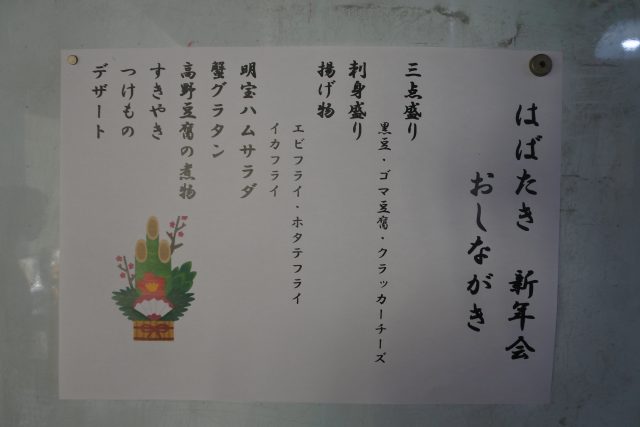 はばたき　新年会
おしながき
三点盛り
黒豆・ゴマ豆腐・クラッカーチーズ
刺身盛り
揚げ物
エビフライ・ホタテフライ
イカフライ
明宝ハムサラダ
蟹グラタン
高野豆腐の煮物
すきやき
つけもの
デザート